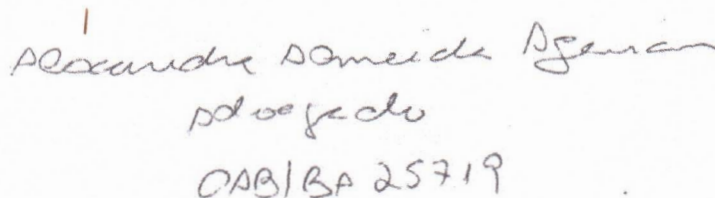 Alexandre Almeida Aguiar
Advogado
OAB/BA 25719